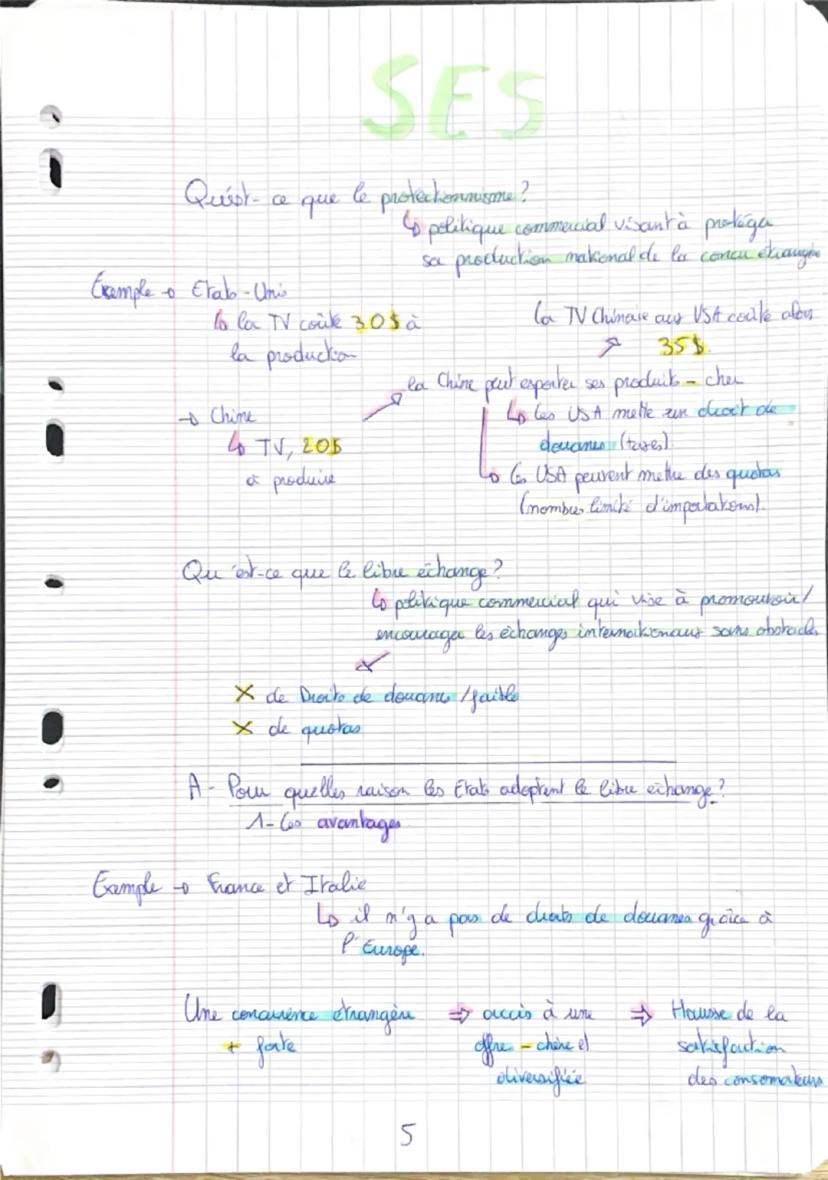 SES
Qu'est-ce que le protectionnisme ?
↳ politique commercial visant à protéga
sa production national de la concu étrangère
Exemple → Etats-Unis
↳ la TV coûte 30$ à
la production
la TV Chinaise aux USA coûte alors
35$.
la Chine peut exporter ses produits - cher
→ Chine
↳ TV, 20$
à produire
↳ les USA mette un droit de
douanes (taxes)
↳ les USA peuvent mettre des quotas
(nombres limité d'importations).
Qu'est-ce que le libre échange ?
↳ politique commercial qui vise à promouvoir/
encourager les échanges internationaux sans obstacles
X de Droits de douane /faible
X de quotas
A- Pour quelles raison les Etats adoptent le libre échange ?
1- Les avantages
Exemple → France et Italie
↳ il n'y a pas de droits de douanes grâce à
l'Europe.
Une concurrence étrangère ⇒ accès à une ⇒ Hausse de la
+ forte offre - chère et satisfaction
diversifiée des consomateurs
5